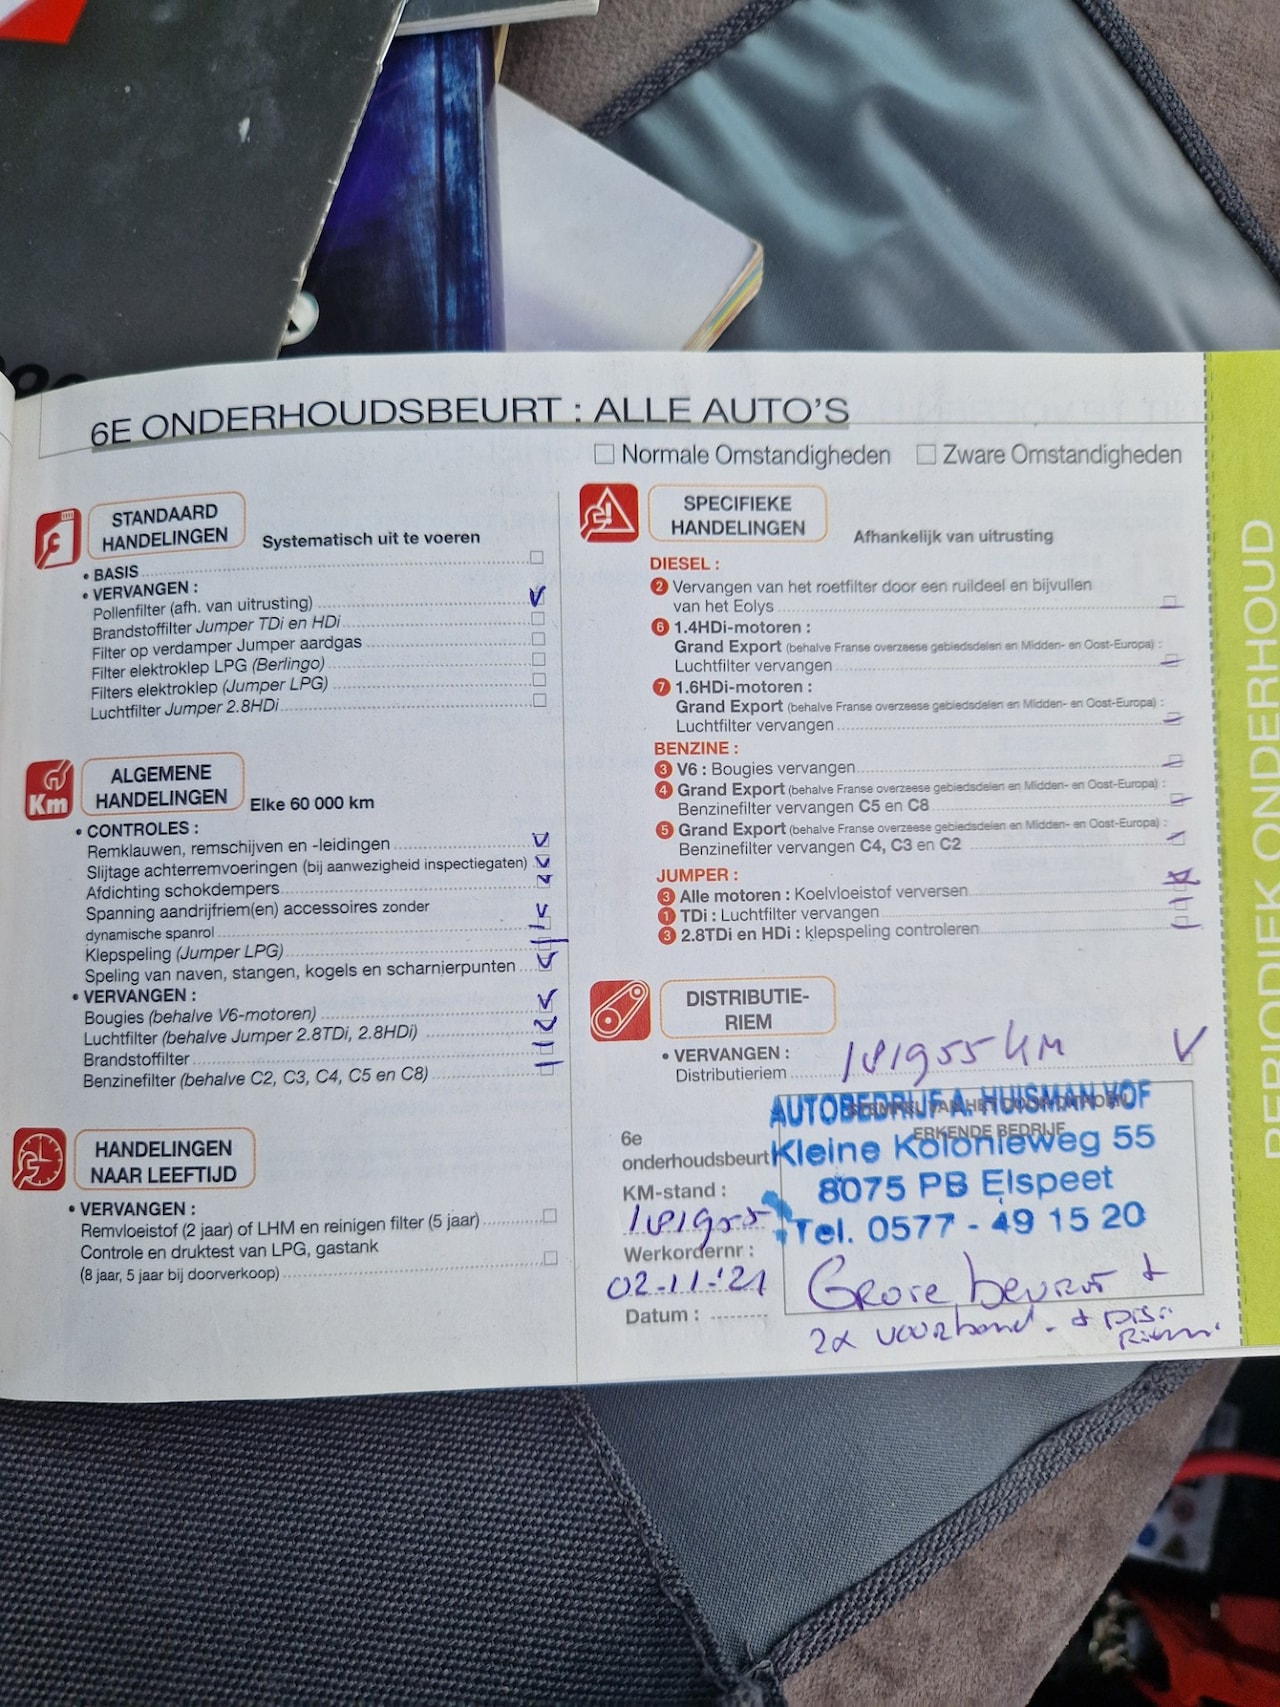 6E ONDERHOUDSBEURT : ALLE AUTO'S
Normale Omstandigheden
Zware Omstandigheden
STANDAARD
HANDELINGEN
Systematisch uit te voeren
• BASIS
• VERVANGEN :
Pollenfilter (afh. van uitrusting)
Brandstoffilter Jumper TDi en HDi
Filter op verdamper Jumper aardgas
Filter elektroklep LPG (Berlingo)
Filters elektroklep (Jumper LPG)
Luchtfilter Jumper 2.8HDi
Km
ALGEMENE
HANDELINGEN
Elke 60 000 km
• CONTROLES :
Remklauwen, remschijven en -leidingen
Slijtage achterremvoeringen (bij aanwezigheid inspectiegaten)
Afdichting schokdempers
Spanning aandrijfriem(en) accessoires zonder
dynamische spanrol
Klepspeling (Jumper LPG)
Speling van naven, stangen, kogels en scharnierpunten
• VERVANGEN :
Bougies (behalve V6-motoren)
Luchtfilter (behalve Jumper 2.8TDi, 2.8HDi)
Brandstoffilter
Benzinefilter (behalve C2, C3, C4, C5 en C8)
HANDELINGEN
NAAR LEEFTIJD
• VERVANGEN :
Remvloeistof (2 jaar) of LHM en reinigen filter (5 jaar)
Controle en druktest van LPG, gastank
(8 jaar, 5 jaar bij doorverkoop)
SPECIFIEKE
HANDELINGEN
Afhankelijk van uitrusting
DIESEL :
2 Vervangen van het roetfilter door een ruildeel en bijvullen
van het Eolys
6 1.4HDi-motoren :
Grand Export (behalve Franse overzeese gebiedsdelen en Midden- en Oost-Europa) :
Luchtfilter vervangen
7 1.6HDi-motoren :
Grand Export (behalve Franse overzeese gebiedsdelen en Midden- en Oost-Europa) :
Luchtfilter vervangen
BENZINE :
3 V6 : Bougies vervangen
4 Grand Export (behalve Franse overzeese gebiedsdelen en Midden- en Oost-Europa) :
Benzinefilter vervangen C5 en C8
5 Grand Export (behalve Franse overzeese gebiedsdelen en Midden- en Oost-Europa) :
Benzinefilter vervangen C4, C3 en C2
JUMPER :
3 Alle motoren : Koelvloeistof verversen
1 TDi : Luchtfilter vervangen
3 2.8TDi en HDi : klepspeling controleren
DISTRIBUTIE-
RIEM
• VERVANGEN :
Distributieriem
181955 KM
STEMPEL VAN HET DOOR CITROEN
ERKENDE BEDRIJF
AUTOBEDRIJF A. HUISMAN HOF
Kleine Kolonieweg 55
8075 PB Elspeet
Tel. 0577 - 49 15 20
6e
onderhoudsbeurt
KM-stand :
181955
Werkordernr :
02-11-'21
Datum :
Grote beurt +
2x voorband - + Dis.
Riem.
PERIODIEK ONDERHOUD